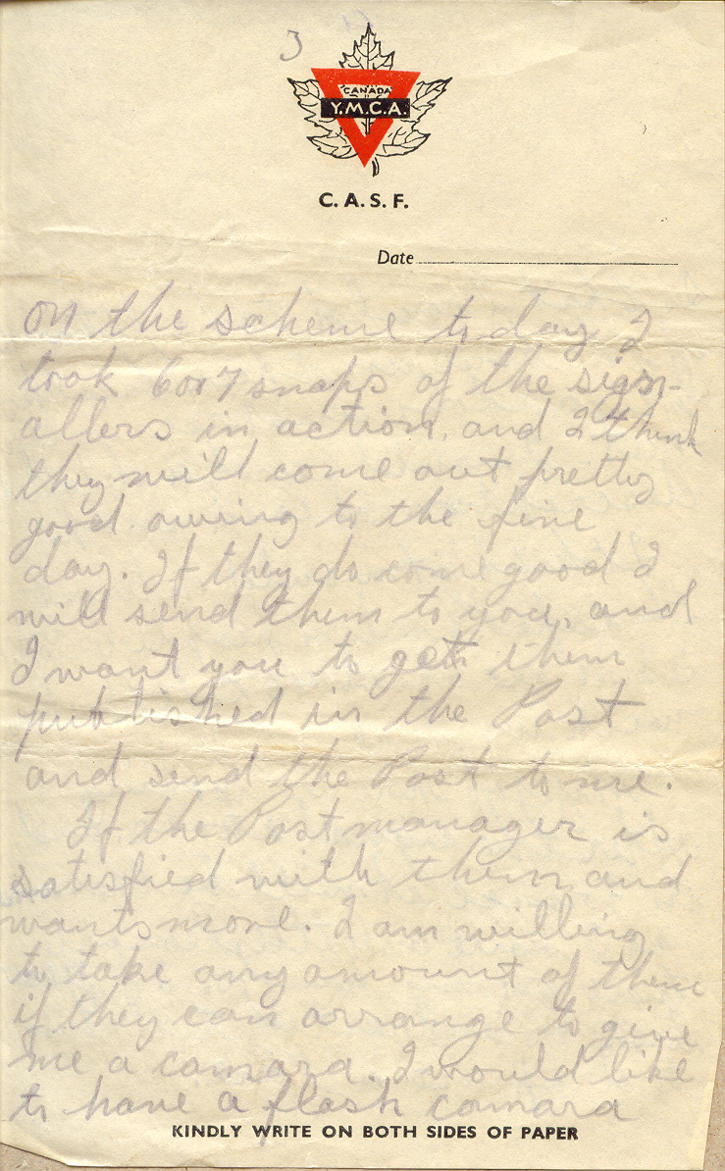 3
CANADA
Y.M.C.A.
C. A. S. F.
Date
on the scheme to day I
took 6 or 7 snaps of the sign-
allers in action, and I think
they will come out pretty
good owing to the fine
day. If they do come good I
will send them to you, and
I want you to get them
published in the Post
and send the Post to me.
If the Post manager is
satisfied with them and
wants more. I am willing
to take any amount of them
if they can arrange to give
me a camara. I would like
to have a flash camara
KINDLY WRITE ON BOTH SIDES OF PAPER